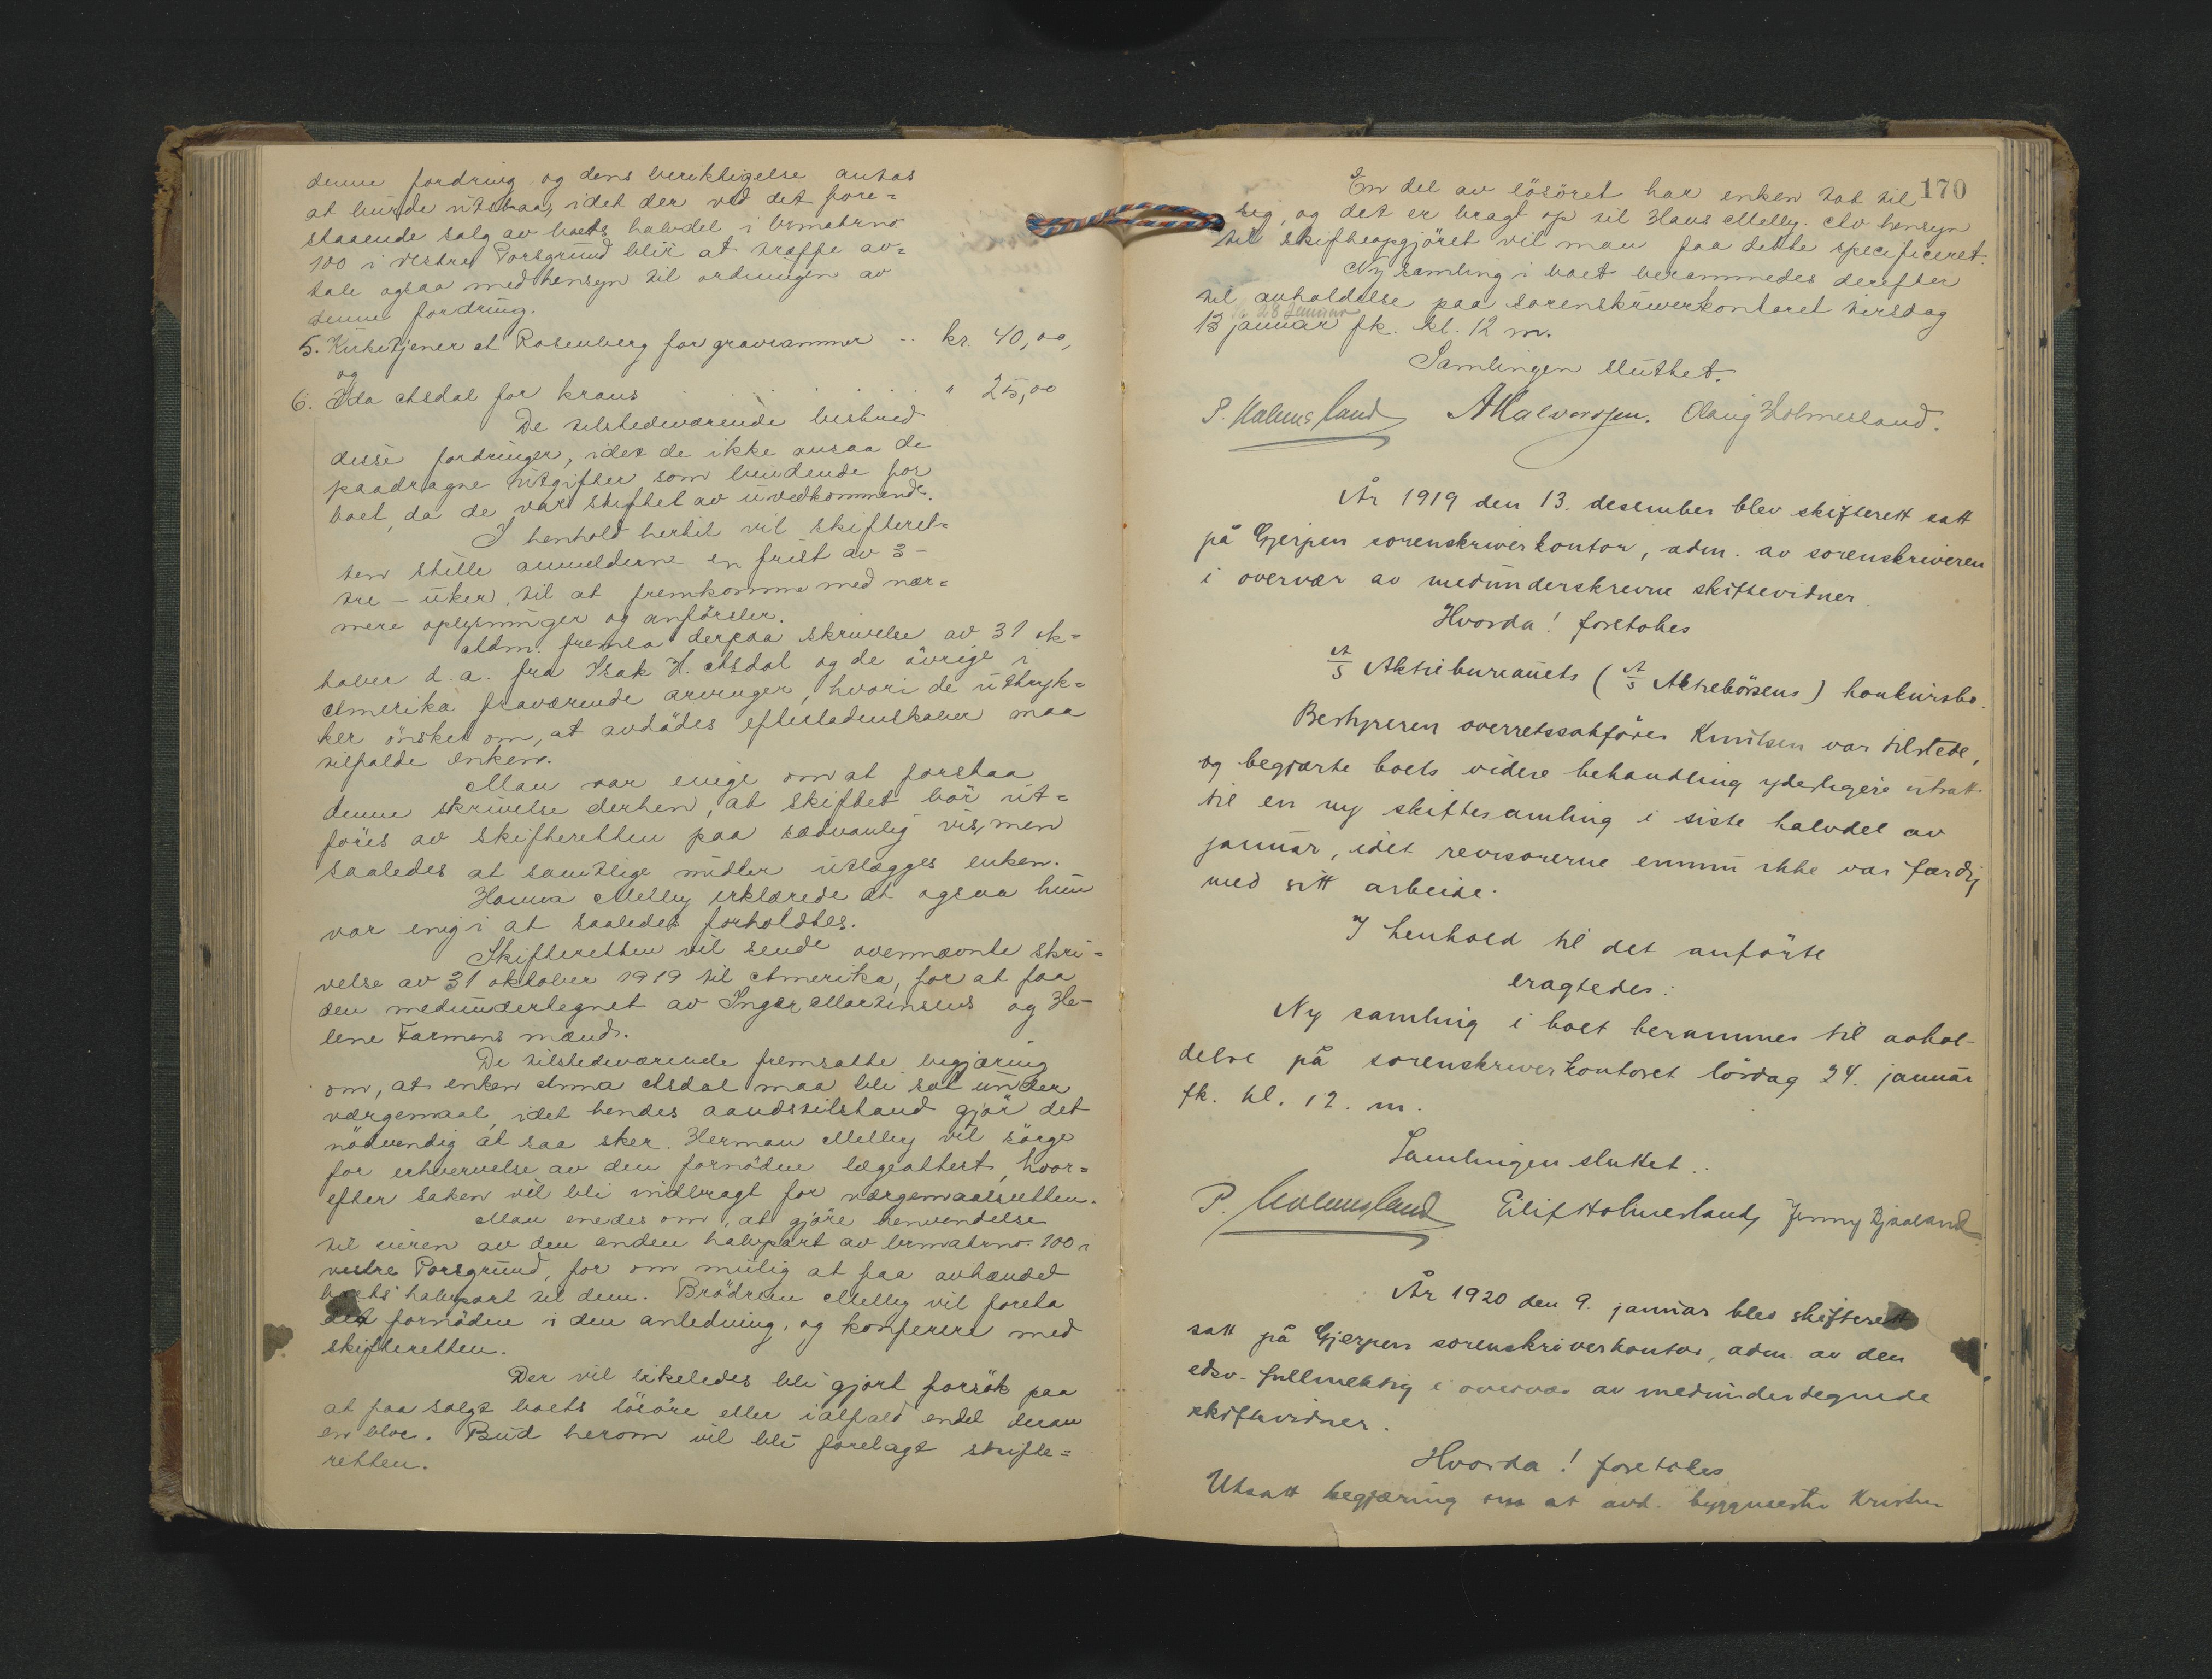 denne fordring og dens berigtigelse antas
at burde utstaa, idet der ved det fore=
staaende salg av boets halvdel i brmatrno
100 i vestre Porsgrund blir at træffe av=
tale ogsaa med hensyn til ordningen av
denne fordring.
5. Kirketjener at Rosenberg for gravrammer .. kr. 40,00,
og
6. Ida Asdal for krans . . . . . . " 25,00
De tilstedeværende bestred
disse fordringer, idet de ikke ansaa de
paadragne utgifter som bindende for
boet, da de var stiftet av uvedkommende.
I henhold hertil vil skifteret=
ten stille anmelderne en frist av 3 -
tre - uker til at fremkomme med nær=
mere oplysninger og anförsler.
Adm. fremla derpaa skrivelse av 31 ok=
tober d.a. fra Isak H. Asdal og de övrige i
Amerika fraværende arvinger, hvori de uttryk=
ker önsket om, at avdödes efterladenskaber maa
tilfalde enken.
Man var enige om at forstaa
denne skrivelse derhen, at skiftet bör ut=
föres av skifteretten paa sædvanlig vis, men
saaledes at samtlige midler utlægges enken.
Hanna Melby erklærede at ogsaa hun
var enig i at saaledes forholdtes.
Skifteretten vil sende ovennævnte skri=
velse av 31 oktober 1919 til Amerika, for at faa
den medundertegnet av Inger Martinsens og He-
lene Farmens mænd.
De tilstedeværende fremsatte begjæring
om, at enken Anna Asdal maa bli sat under
værgemaal, idet hendes aandstilstand gjör det
nödvendig at saa sker. Herman Melby vil sörge
for erhvervelse av den fornödne lægeattest, hvor=
efter saken vil bli indbragt for værgemaalsretten.
Man enedes om, at gjöre henvendelse
til eieren av den anden halvpart av brmatrno. 100 i
vestre Porsgrund, for om mulig at faa avhændet
boets halvpart til dem. Brödrene Melby vil foreta
det fornödne i den anledning, og konferere med
skifteretten.
Der vil likeledes bli gjort forsök paa
at faa solgt boets lösöre eller ialfald endel derav
en bloc. Bud herom vil bli forelagt skifte=
retten.
170
En del av lösöret har enken tat til
sig, og det er bragt op til Hans Melby. Av hensyn
til skifteopgjöret vil man faa dette specificeret.
Ny samling i boet berammedes derefter
til avholdelse paa sorenskriverkontoret tirsdag
28 januar
13 januar fk. kl. 12 m.
Samlingen sluttet.
P. Holmesland AHalvorsen. Olaug Holmesland.
År 1919 den 13. desember blev skifterett satt
på Gjerpen sorenskriverkontor, adm. av sorenskriveren
i overvær av medunderskrevne skiftevidner.
Hvorda! foretokes
A/S Aktiebureauets (A/S Aktiebörsens) konkursbo.
Bestyreren overretssakförer Knutsen var tilstede,
og begjærte boets videre behandling yderligere utsatt
til en ny skiftesamling i siste halvdel av
januar, idet revisorerne ennu ikke var færdig
med sitt arbeide.
I henhold til det anförte
eragtedes:
Ny samling i boet berammes til avhol-
delse på sorenskriverkontoret lördag 24. januar
fk. kl. 12. m.
Samlingen sluttet.
P. Holmesland Eilif Holmesland, Jenny Bjaaland
År 1920 den 9. januar blev skifterett
satt på Gjerpen sorenskriverkontor, adm. av den
edsv. fullmektig i overvær av medundertegnede
skiftevidner.
Hvorda! foretokes
Utsatt begjæring om at avd. byggmester Kristen